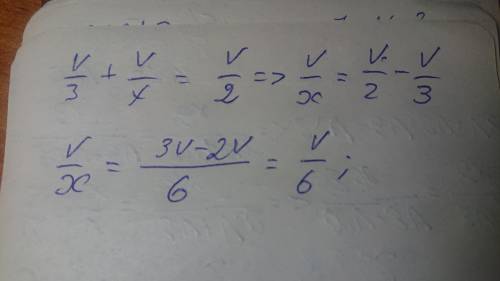 V/3 + V/x = V/2 => V/x = V/2 - V/3
V/x = (3V-2V)/6 = V/6;